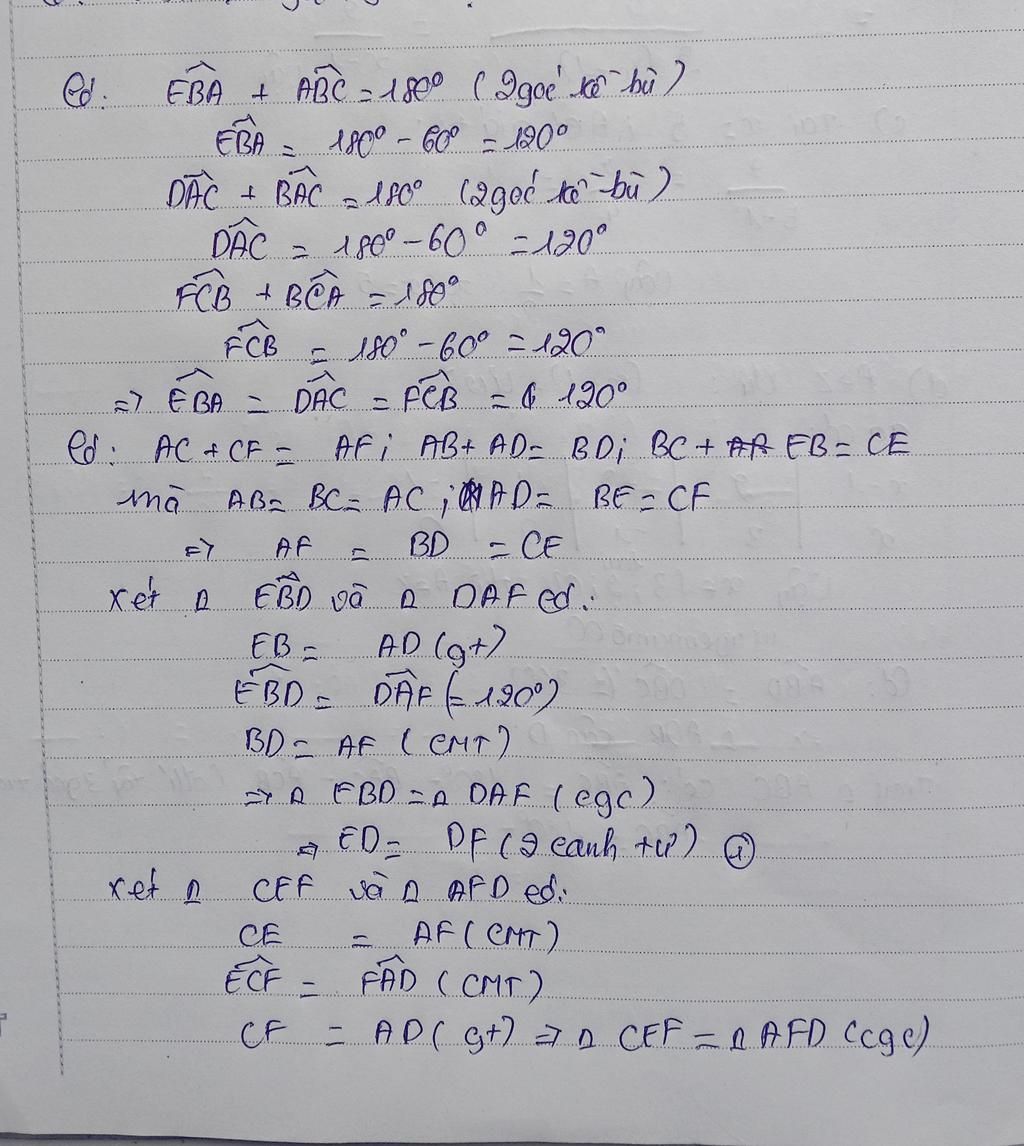 Có: EBA + ABC = 180° (2 góc kề bù)
EBA = 180° - 60° = 120°
DAC + BAC = 180° (2 góc kề bù)
DAC = 180° - 60° = 120°
FCB + BCA = 180°
FCB = 180° - 60° = 120°
=> EBA = DAC = FCB = 120°
Có: AC + CF = AF; AB + AD = BD; BC + EB = CE
mà AB = BC = AC; AD = BE = CF
=> AF = BD = CE
Xét Δ EBD và Δ DAF có:
EB = AD (gt)
EBD = DAF (= 120°)
BD = AF (CMT)
=> Δ EBD = Δ DAF (cgc)
=> ED = DF (2 cạnh tư) ①
xét Δ CEF và Δ AFD có:
CE = AF (CMT)
ECF = FAD (CMT)
CF = AD (gt) => Δ CEF = Δ AFD (cgc)